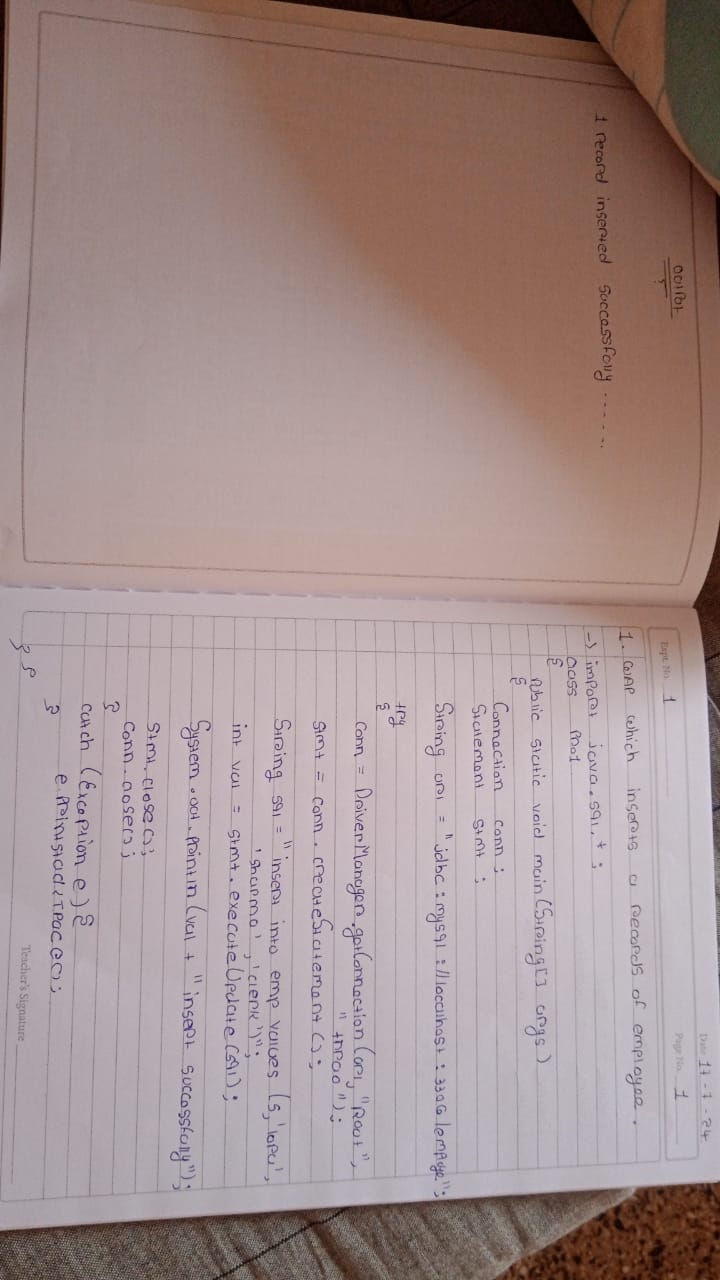 output
1 record inserted successfully ......
Expt. No. 1
Date 17-7-24
Page No. 1
1. WAP which inserts a records of employee.
→ import java.sql.*;
class Pro1
{
public static void main(String[] args)
{
Connection conn;
Statement stmt;
String url = "jdbc:mysql://localhost:3306/
try
{
conn = DriverManager.getConnection(url, "root",
");
stmt = conn.createStatement();
String sql = "insert into emp values (5,
'sharma', 'clerk')";
int val = stmt.executeUpdate(sql);
System.out.println(val + "insert successfully");
stmt.close();
conn.close();
}
catch (Exception e) {
e.printStackTrace();
}
} }
Teacher's Signature